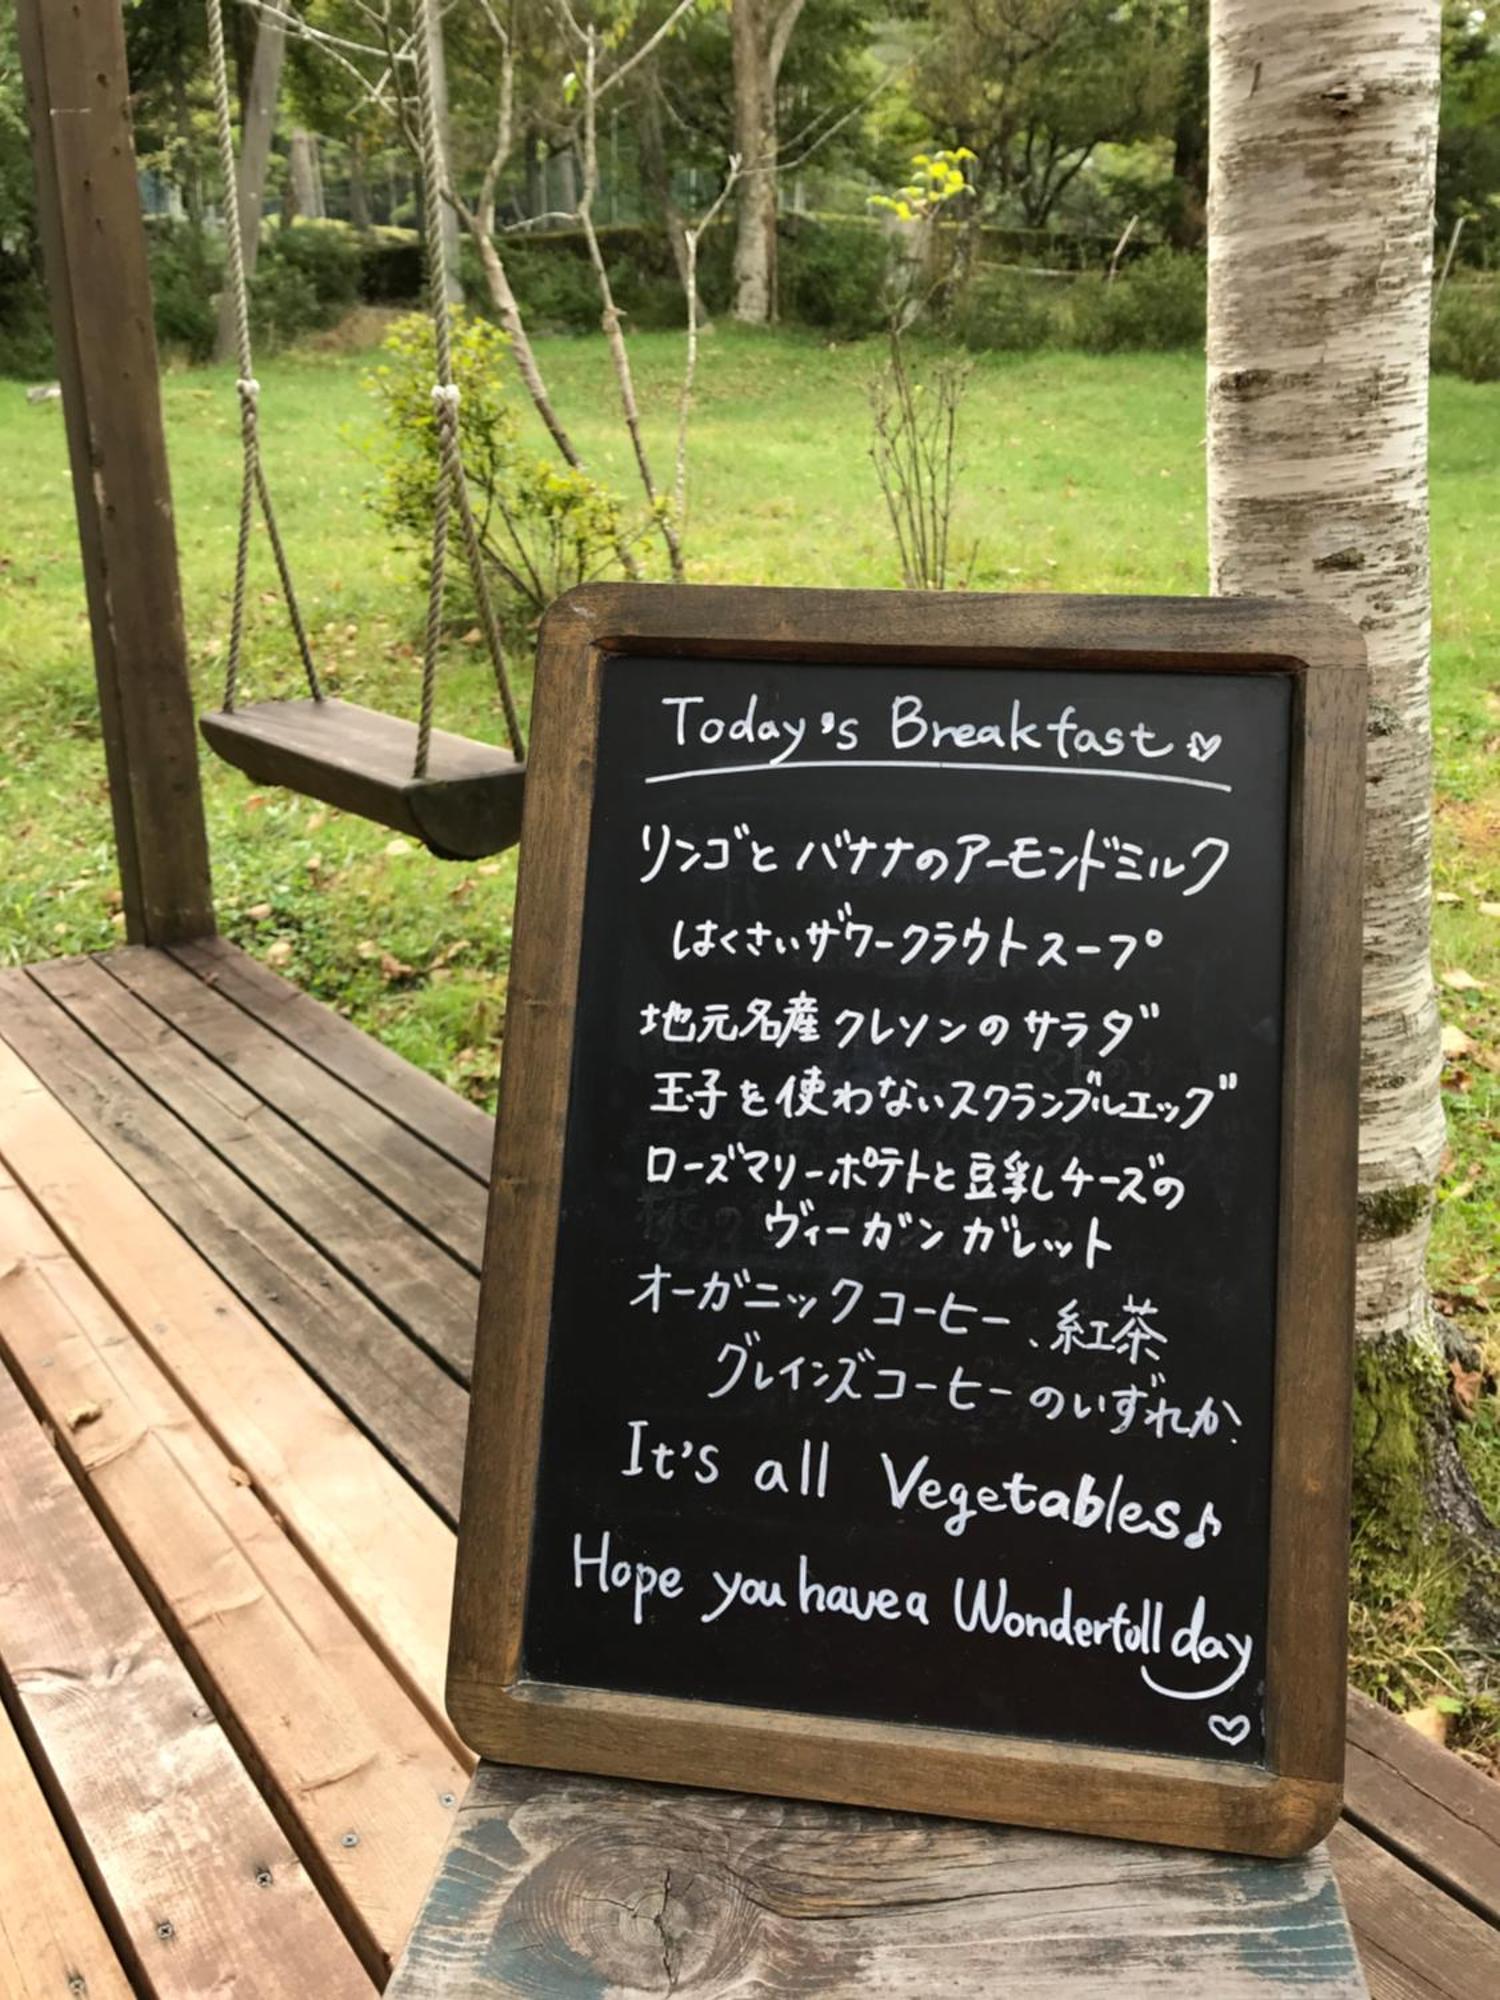 Today's Breakfast♡
リンゴとバナナのアーモンドミルク
はくさいザワークラウトスープ
地元名産クレソンのサラダ
玉子を使わないスクランブルエッグ
ローズマリーポテトと豆乳チーズの
ヴィーガンガレット
オーガニックコーヒー、紅茶
グレインズコーヒーのいずれか
It's all Vegetables♪
Hope you have a Wonderfull day
♡